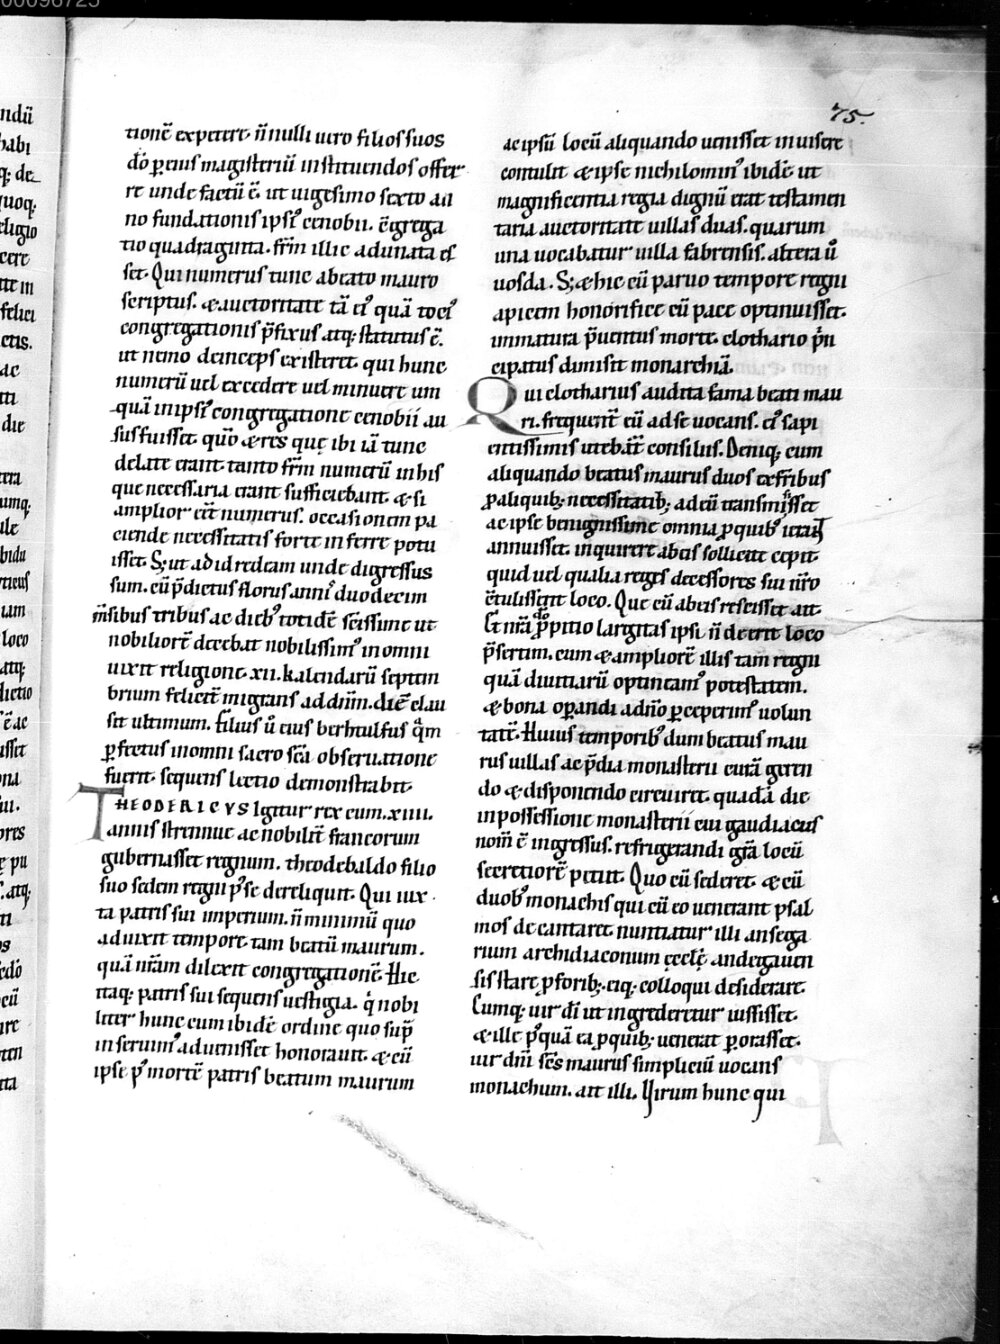 75.
tionē expetere. n̄nulli uiro filios suos
dō p eius magisteriū instituendos offer
re unde factū ē. ut uigesimo sexto an
no fundationis ipsi᷒ cenobii. c̄grega
tio quadraginta. frm̄ illic adunata es
set. Qui numerus tunc ab eato mauro
scriptus. & auctoritate tā ei᷒ quā toci᷒
congregationis p̄fixus atq; statutus ē.
ut nemo deinceps existeret. qui hunc
numerū uel excedere uel minuere um
quā in ipsi᷒ congregatione cenobii au
sus fuisset. quō & res quę ibi iā tunc
delate erant. tanto frm̄ numerū in his
que necessaria erant sufficiebant. & si
amplior eēt numerus. occasionem pa
ciende necessitatis forte inferre potu
isset. S; ut ad id redeam unde digressus
sum. cū p̄dictus florus anni᷒ duodecim
m̄sibus tribus ac dieb᷒ totidē sc̄issime ut
nobiliorē decebat nobilissim᷒ in omni
uixit religione. xii. kalendarū septem
brium felicit̄ migrans ad dn̄m. diē clau
sit ultimum. filius ū eius bertulfus q̄m
pfectus in omni sacro sc̄a obseruatione
fuerit. sequens lectio demonstrabit.
THEODERICVS Igitur rex cum. xiiii.
annis strenue ac nobilit̄ francorum
gubernasset regnum. theodebaldo filio
suo sedem regni p᷒ se dereliquit. Qui iux
ta patris sui imperium. n̄ minimū quo
aduixit tempore. tam beatū maurum.
quā nr̄am dilexit congregationē. Hic
itaq; patris sui sequens uestigia. q̇ nobi
liter hunc cum ibidē ordine quo sup̄
inseruim᷒ aduenisset honorauit. & cū
ipse p᷒ mortē patris beatum maurum
ac ipsū locū aliquando uenisset inuisere
contulit & ipse nichilomin᷒ ibidē. ut
magnificentia regia dignū erat testamen
taria auctoritate uillas duas. quarum
una uocabatur uilla fabrensis. altera ū
uosda. S; & hic cū paruo tempore regni
apicem honorifice cū pace optinuisset.
inmatura p̄uentus morte. clothario p̄n
cipatus dimisit monarchiā.
Qui clotharius audita fama beati mau
ri. frequent̄ eū ad se uocans. ei᷒ sapi
entissimis utebat̄ consiliis. Deniq; cum
aliquando beatus maurus duos ex frib̄us
p aliquib; necessitatib; ad eū transmisisset
ac ipse benignissime omnia p quib᷒
annuisset. inquirere ab eis sollicite cepit.
quid uel qualia reges decessores sui nr̄o
c̄tulissent loco. Que cū ab eis resciisset ait.
Et nr̄a dō ppitio largitas ipsi n̄ deerit loco
p̄sertim. cum & ampliorē illis tam regni
quā diuitiarū optineam᷒ potestatem.
& bona opandi a dn̄o pceperim᷒ uolun
tatē. Huius temporib᷒ dum beatus mau
rus uillas ac p̄dia monasterii curā geren
do & disponendo circuiret. quadā die
in possessione monasterii cui gaudiacus
nom̄ ē ingressus. refrigerandi gr̄a locū
secretiorē petiit. Quo cū sederet. & cū
duob᷒ monachis qui cū eo uenerant psal
mos decantaret. nuntiatur illi ansega
rium archidiaconum ęccłę andegauen
sis stare p forib; eiq; colloqui desiderare.
Cumq; uir dī ut ingrederetur iussisset.
& ille p᷒quā ea p quib; uenerat porasset.
uir dn̄i sc̄s maurus simpliciū uocans
monachum. ait illi. Virum hunc qui